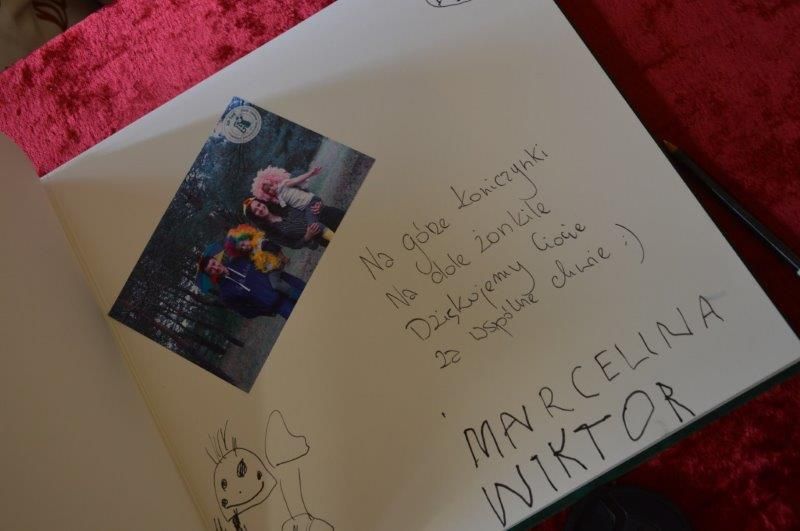 Na górze koniczynki
Na dole żonkile
Dziękujemy Ciocie
za wspólne chwile :)
MARCELINA
WIKTOR